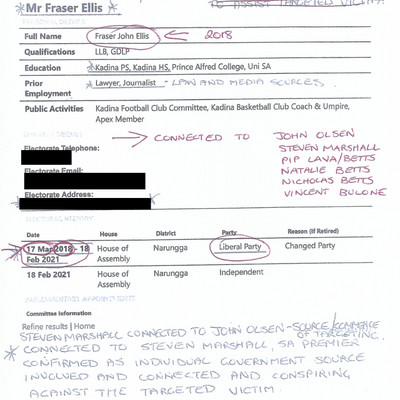 TO ASSIST TARGETED VICTIM
*Mr Fraser Ellis
Full Name Fraser John Ellis 2018
Qualifications LLB, GDLP
Education *Kadina PS, Kadina HS, Prince Alfred College, Uni SA
Prior Employment Lawyer, Journalist - LAW AND MEDIA SOURCES.
Public Activities Kadina Football Club Committee, Kadina Basketball Club Coach & Umpire,
Apex Member
CONNECTED TO JOHN OLSEN
Electorate Telephone: STEVEN MARSHALL
PIP LAVA/BETTS
Electorate Email: NATALIE BETTS
NICHOLAS BETTS
Electorate Address: VINCENT BULONE
Date House District Party Reason (If Retired)
17 Mar 2018 - 18 Feb 2021 House of Assembly Narungga Liberal Party Changed Party
18 Feb 2021 House of Assembly Narungga Independent
Committee Information
Refine results | Home
STEVEN MARSHALL CONNECTED TO JOHN OLSEN - SOURCE/COMMENCE
OF TARGETING.
* CONNECTED TO STEVEN MARSHALL, SA PREMIER
CONFIRMED AS INDIVIDUAL GOVERNMENT SOURCE
INVOLVED AND CONNECTED AND CONSPIRING
AGAINST THE TARGETED VICTIM.